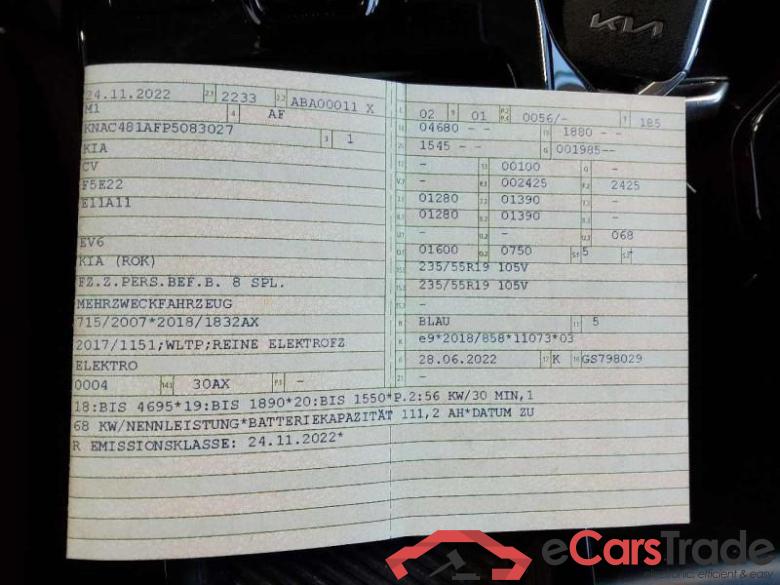 KIA
24.11.2022 2233 ABA00011 X
M1 4 AF
KNAC481AFP5083027 3 1
KIA
CV
F5E22
E11A11
EV6
KIA (ROK)
FZ.Z.PERS.BEF.B. 8 SPL.
MEHRZWECKFAHRZEUG
715/2007*2018/1832AX
2017/1151;WLTP;REINE ELEKTROFZ
ELEKTRO
0004 14.1 30AX P.3 -
L 02 9 01 P.2 P.4 0056/- T 185
18 04680 - - 19 1880 - -
20 1545 - - G 001985--
- 13 00100 Q -
V.7 - F.1 002425 F.2 2425
01280 01390 -
01280 01390 -
U.1 - U.2 - U.3 068
O.1 01600 O.2 0750 S.1 5 S.2 -
15.1 235/55R19 105V
15.2 235/55R19 105V
15.3 -
R BLAU 11 5
K e9*2018/858*11073*03
6 28.06.2022 17 K 16 GS798029
21 -
18:BIS 4695*19:BIS 1890*20:BIS 1550*P.2:56 KW/30 MIN,1
68 KW/NENNLEISTUNG*BATTERIEKAPAZITÄT 111,2 AH*DATUM ZU
R EMISSIONSKLASSE: 24.11.2022*
eCarsTrade
electronic, efficient & easy